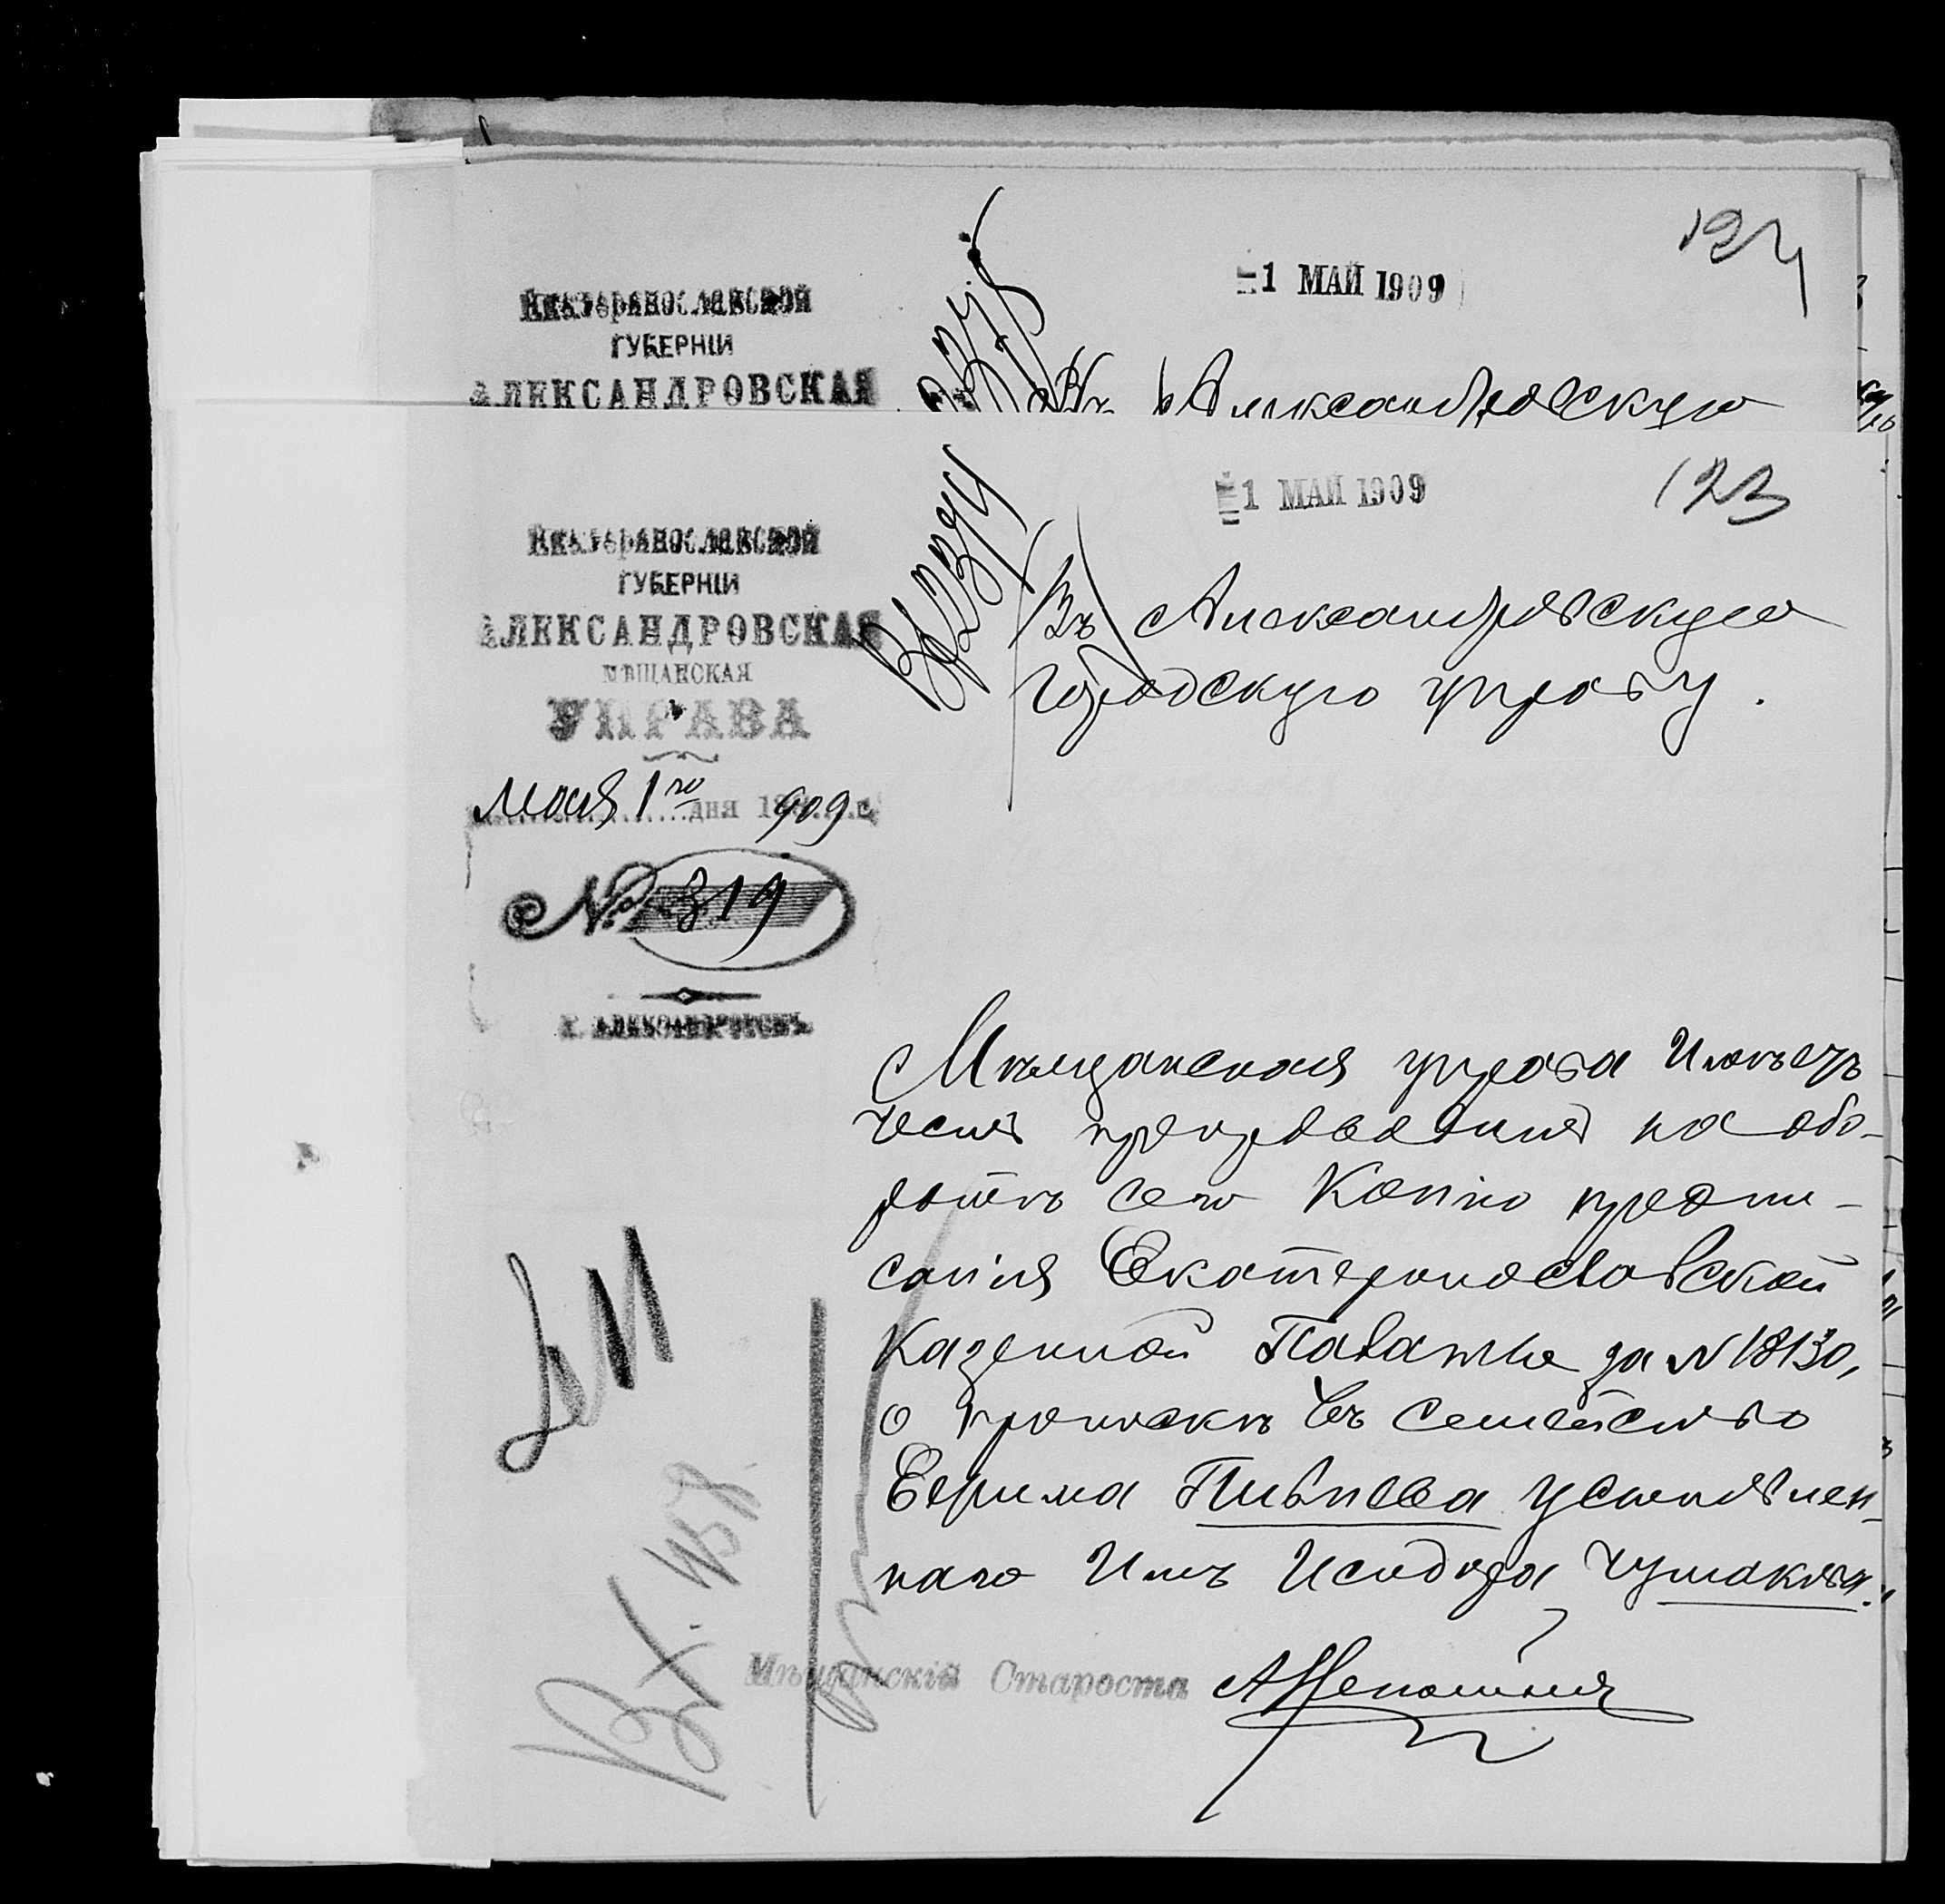 124
1 МАЙ 1909
Екатеринославской
ГУБЕРНІИ
АЛЕКСАНДРОВСКАЯ
Въ Александровскую
123
1 МАЙ 1909
Екатеринославской
ГУБЕРНІИ
АЛЕКСАНДРОВСКАЯ
МѢЩАНСКАЯ
УПРАВА
Мая 1го дня 1909 г.
№ 319
г. АЛЕКСАНДРОВСКЪ
Въ Александровскую
Городскую управу.
Мѣщанская управа имѣетъ
честь препроводить на обо-
ротѣ сего копію предпи-
санія Екатеринославской
Казенной Палаты за № 18130,
о припискѣ въ семейство
Ефима Пивнева усыновлен-
наго имъ Исидора Чумакова.
Мѣщанскій Староста
Вх.